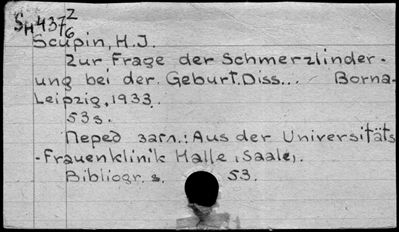 SH437 2/6
Scupin, H.J.
Zur Frage der Schmerzlinder-
ung bei der Geburt. Diss... Borna-
Leipzig, 1933.
53 s.
Перед загл.: Aus der Universitäts
-Frauenklinik Halle (Saale).
Bibliogr. s. 53.